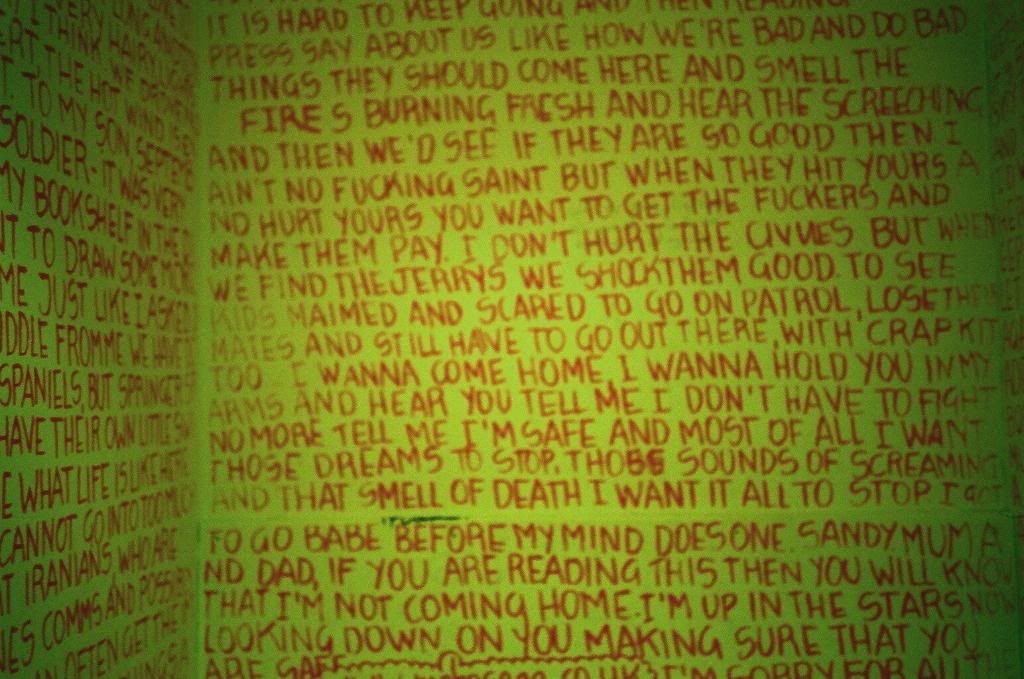 VERY LONG AND
THINK
AT THE HOT WIND IS
TO MY SON
SOLDIER - IT WAS VERY
MY BOOKSHELF IN THE
TO DRAW SOME MORE
ME JUST LIKE I ASKED
UDDLE FROM ME WE HAVE
SPANIELS, BUT SPRINGERS
HAVE THEIR OWN LITTLE
E WHAT LIFE IS LIKE HERE
CANNOT GO INTO TOO MUCH
AT IRANIANS WHO ARE
COMMS AND
OFTEN GET THE
IT IS HARD TO KEEP GOING AND THEN READING
PRESS SAY ABOUT US LIKE HOW WE'RE BAD AND DO BAD
THINGS THEY SHOULD COME HERE AND SMELL THE
FIRES BURNING FRESH AND HEAR THE SCREECHING
AND THEN WE'D SEE IF THEY ARE SO GOOD THEN I
AIN'T NO FUCKING SAINT BUT WHEN THEY HIT YOURS A
NO HURT YOURS YOU WANT TO GET THE FUCKERS AND
MAKE THEM PAY. I DON'T HURT THE CIVVIES BUT WHEN
WE FIND THE JERRYS WE SHOCK THEM GOOD. TO SEE
KIDS MAIMED AND SCARED TO GO ON PATROL, LOSE THEIR
MATES AND STILL HAVE TO GO OUT THERE, WITH CRAP KIT
TOO. I WANNA COME HOME, I WANNA HOLD YOU IN MY
ARMS AND HEAR YOU TELL ME I DON'T HAVE TO FIGHT
NO MORE TELL ME I'M SAFE AND MOST OF ALL I WANT
THOSE DREAMS TO STOP. THOSE SOUNDS OF SCREAMING
AND THAT SMELL OF DEATH I WANT IT ALL TO STOP I GOT
TO GO BABE BEFORE MY MIND DOES ONE. SANDY MUM A
ND DAD, IF YOU ARE READING THIS THEN YOU WILL KNOW
THAT I'M NOT COMING HOME. I'M UP IN THE STARS NOW
LOOKING DOWN ON YOU MAKING SURE THAT YOU
ARE SAFE I'M SORRY FOR ALL THE